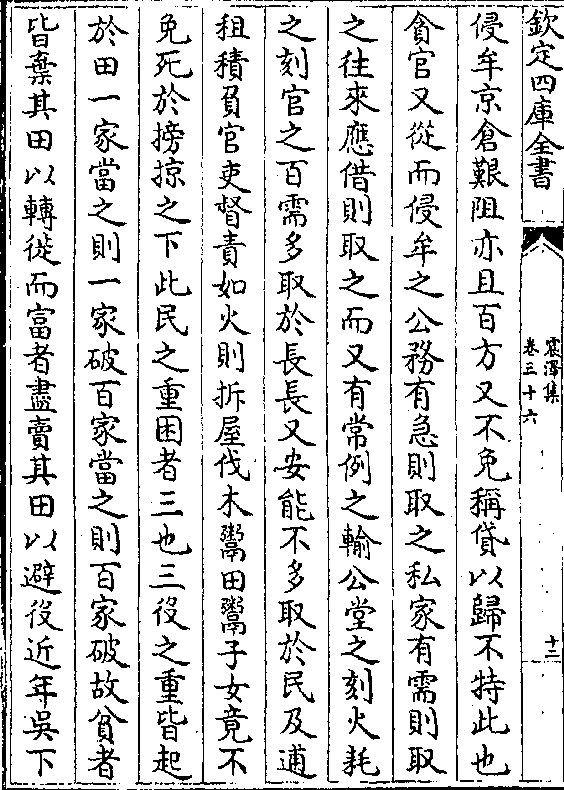 欽定四庫全書
震澤集
卷三十六
十三
侵牟京倉艱阻亦且百方又不免稱貸以歸不特此也
貪官又從而侵牟之公務有急則取之私家有需則取
之往來應借則取之而又有常例之輸公堂之刻火耗
之刻官之百需多取於長長又安能不多取於民及逋
租積負官吏督責如火則拆屋伐木鬻田鬻子女竟不
免死於搒掠之下此民之重困者三也三役之重皆起
於田一家當之則一家破百家當之則百家破故貧者
皆棄其田以轉徙而富者盡賣其田以避役近年吳下